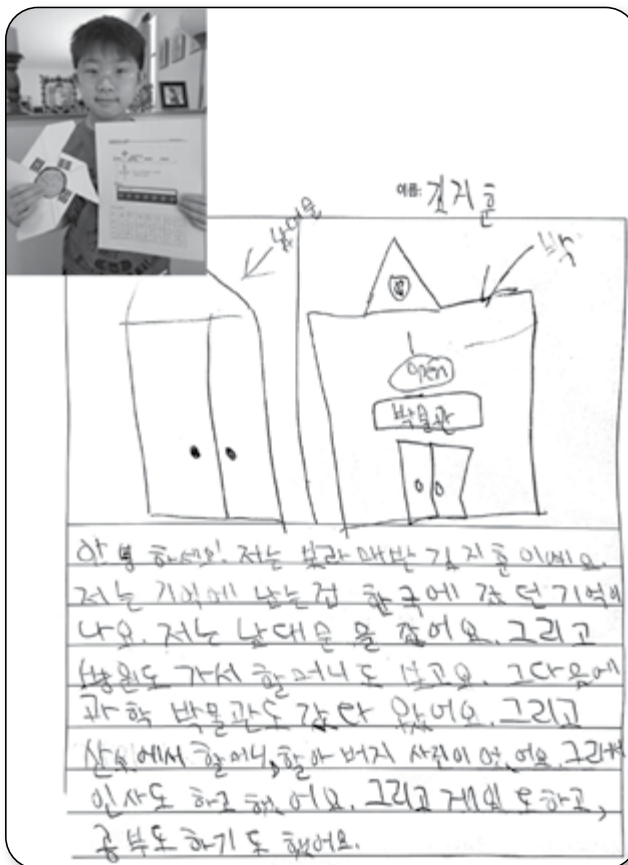 이름: 김지훈
남대문
open
박물관
안녕하세요! 저는 보라매반 김지훈이에요.
저는 기억에 남는 한국에 갔던 기억이
나요. 저는 남대문을 갔어요. 그리고
병원도 가서 할머니도 보고요. 그다음에
과학 박물관도 갔다 왔어요. 그리고
산소에서 할머니, 할아버지 사진이 어요. 그래서
인사도 하고 했어요. 그리고 게임도하고,
공부도 하기도 했어요.